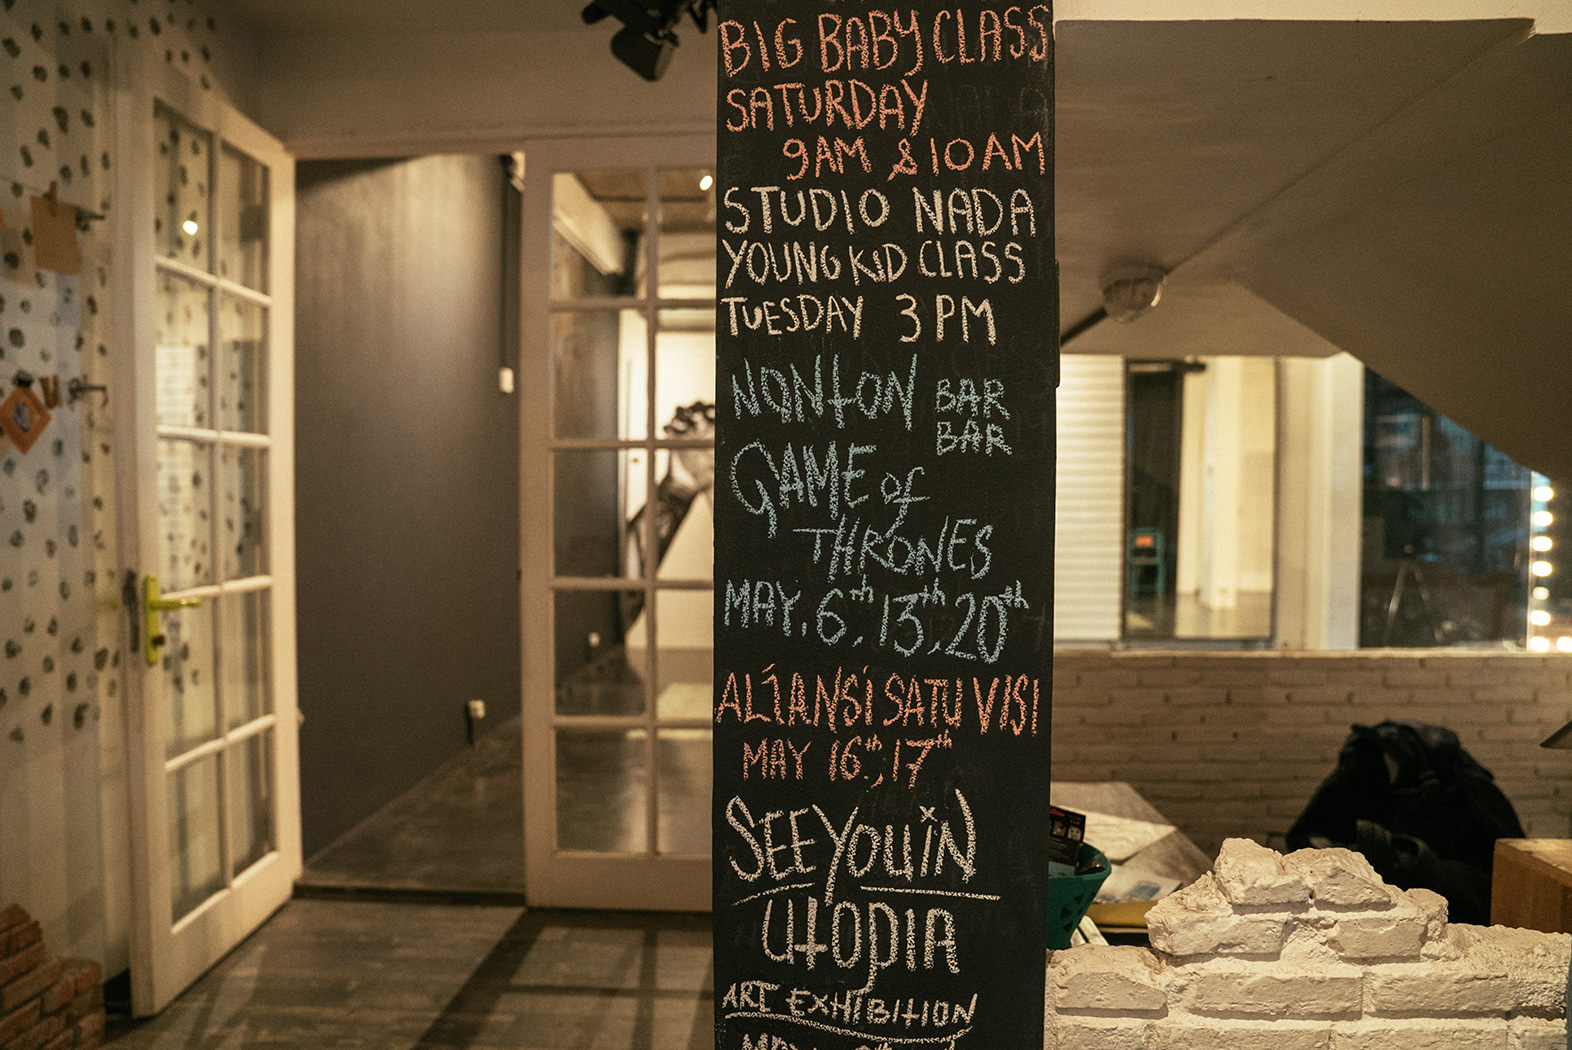 BIG BABY CLASS
SATURDAY
9AM & 10AM
STUDIO NADA
YOUNG KID CLASS
TUESDAY 3PM
NONTON BAR BAR
GAME of
THRONES
MAY. 6th, 13th, 20th
ALiANSi SATU VISI
MAY 16th, 17th
SEE YOU iN
UtOPIA
ART EXHIBITION